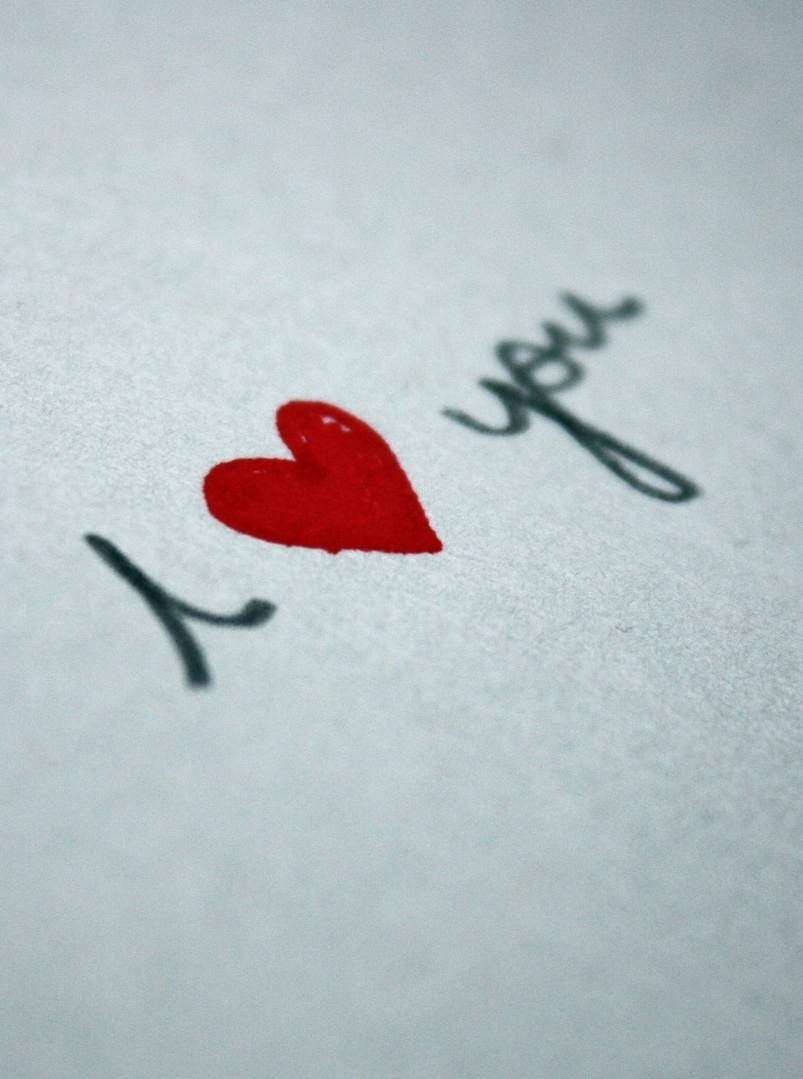 I ❤ you